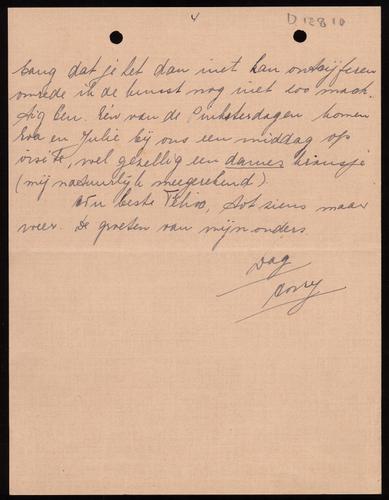 4
D 12810
bang dat je het dan niet kan ontcijferen
omrede ik de kunst nog niet zoo mach-
tig ben. Eén van de Pinksterdagen komen
Eva en Julie bij ons een middag op
visite, wel gezellig een dames kransje
(mij natuurlijk meegerekend).
Nu beste tot ziens maar
weer. De groeten van mijn ouders
Dag